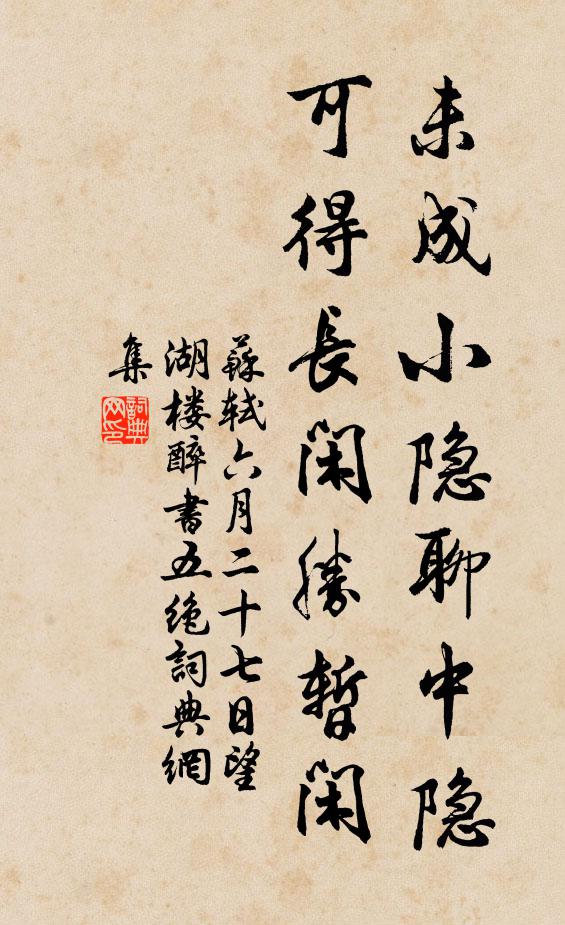 未成小隐聊中隐
可得長閑勝暫閑
蘇軾六月二十七日望
湖楼醉書五绝詞典網
集
詞典网印